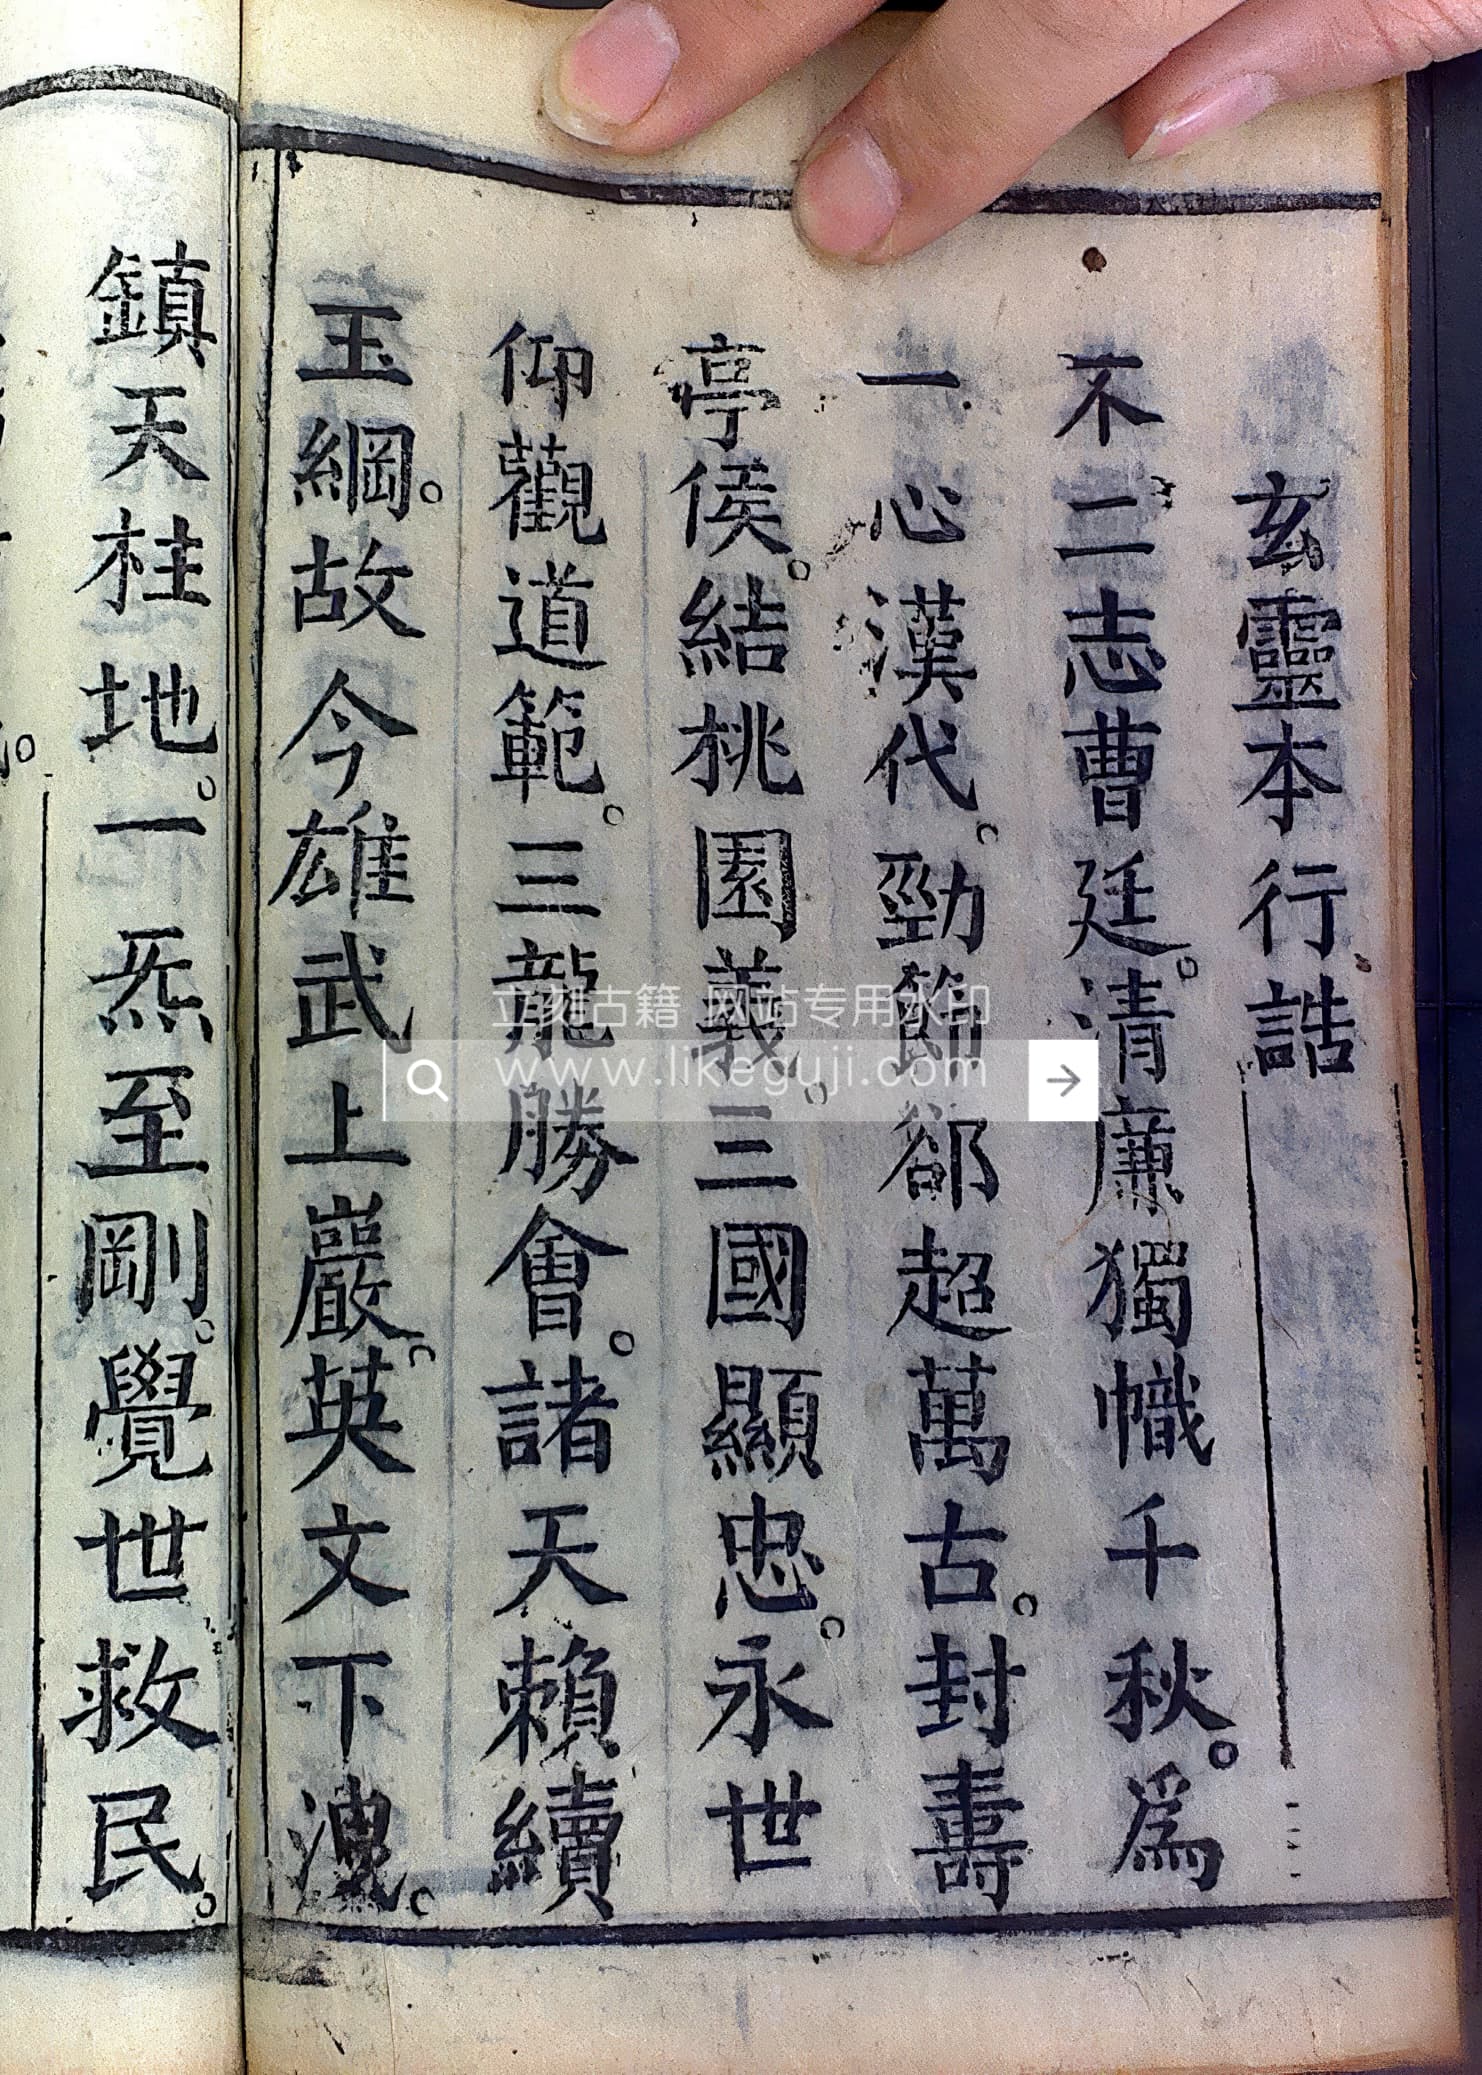 玄靈本行誥
不二志曹廷。清廉獨幟千秋。爲
一心漢代。勁節郤超萬古。封壽
亭侯。結桃園義。三國顯忠。永世
仰觀道範。三龍勝會。諸天賴續
玉綱。故今雄武上嚴。英文下洩。
鎮天柱地。一炁至剛。覺世救民。
立刻古籍 网站专用水印
www.likeguji.com